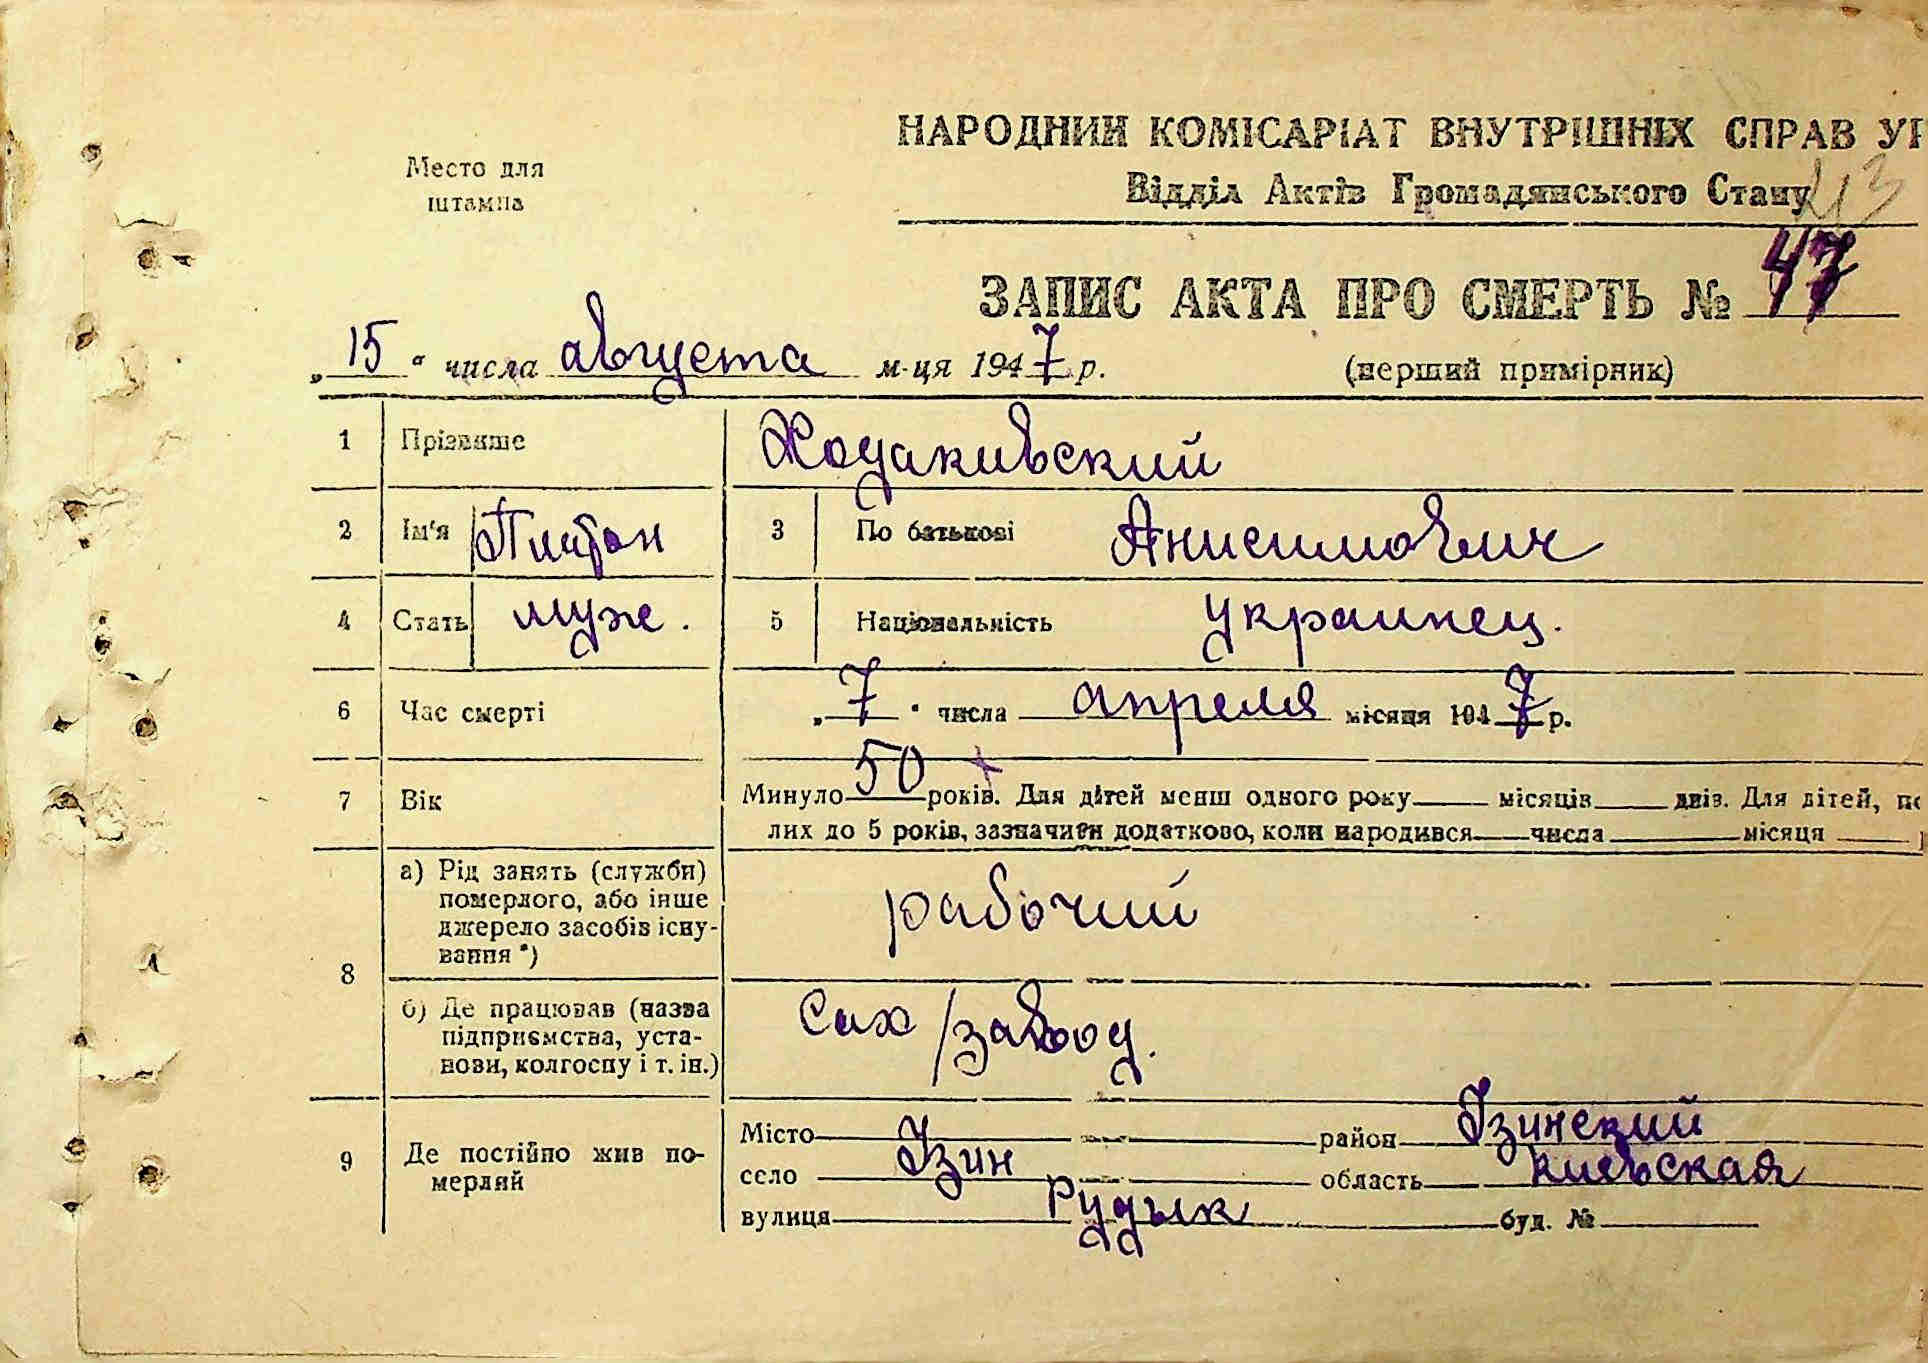 НАРОДНИЙ КОМІСАРІАТ ВНУТРІШНІХ СПРАВ
Место для
штампа
Відділ Актів Громадянського Стану
ЗАПИС АКТА ПРО СМЕРТЬ № 47
„ 15 “ числа августа м-ця 1947 р. (перший примірник)
1 Прізвище Ходакивский
2 Ім'я Платон 3 По батькові Анисимович
4 Стать муж. 5 Національність украинец.
6 Час смерті „ 7 “ числа апреля місяця 1947 р.
7 Вік Минуло 50 років. Для дітей менш одного року місяців днів. Для дітей,
лих до 5 років, зазначити додатково, коли народився числа місяця
8 а) Рід занять (служби)
померлого, або інше
джерело засобів існу-
вання *) рабочий
б) Де працював (назва
підприємства, уста-
нови, колгоспу і т. ін.) Сах/завод.
9 Де постійно жив по-
мерлий
Місто район Узинский
село Узин область Киевская
вулиця Рудык буд. №